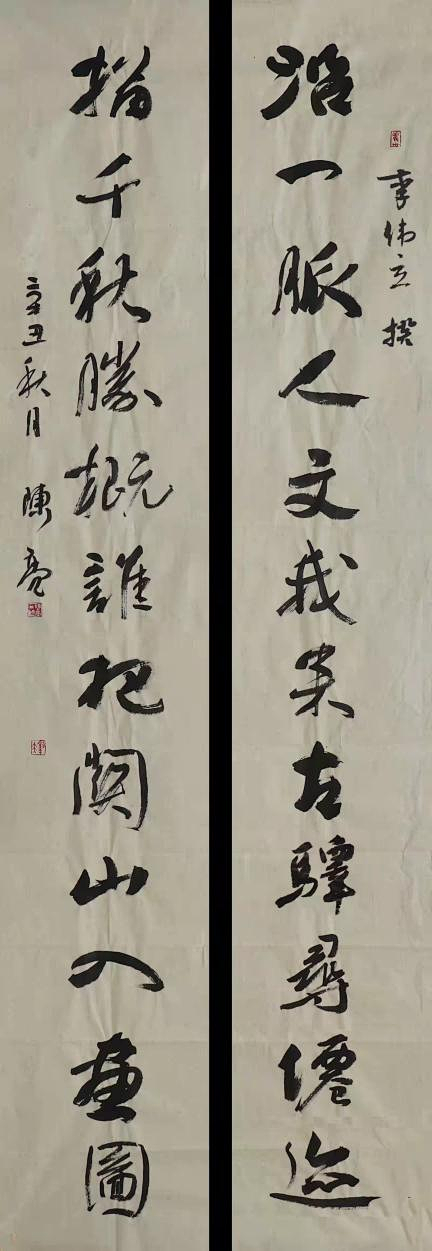 李伟立 撰
沿一脈人文我来古驛尋僊迹
指千秋勝概誰把關山入畫圖
辛丑秋月 陳亮